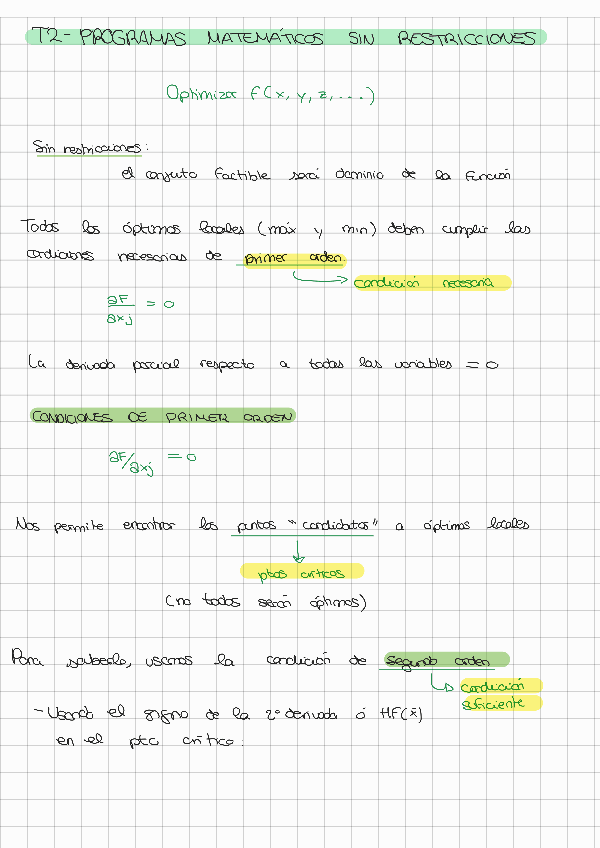 T2- PROGRAMAS MATEMÁTICOS SIN RESTRICCIONES
Optimizar f(x, y, z, ...)
Sin restricciones:
el conjuto factible será dominio de la función
Todos los óptimos locales (máx y min) deben cumplir las
condiciones necesarias de primer orden.
condición necesaria
∂F/∂xj = 0
La derivada parcial respecto a todas las variables = 0
CONDICIONES DE PRIMER ORDEN
∂F/∂xj = 0
Nos permite encontrar los puntos "candidatos" a óptimos locales
ptos críticos
(no todos serán óptimos)
Para saberlo, usamos la condición de segundo orden
condición
suficiente
- Usando el signo de la 2ª derivada ó HF(x̄)
en el pto crítico: